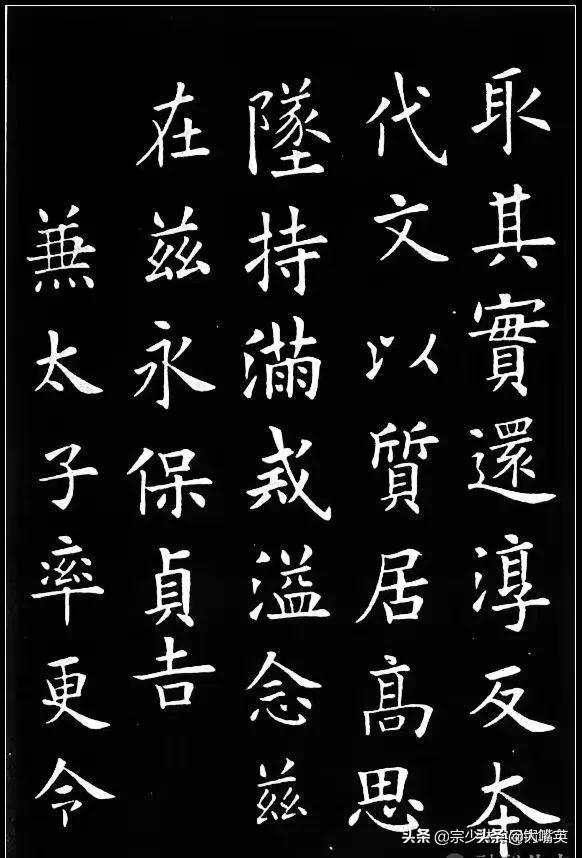 取其實還淳反本
代文以質居高思
墜持滿戒溢念茲
在茲永保貞吉
兼太子率更令
头条@宗少
头条@铁嘴英